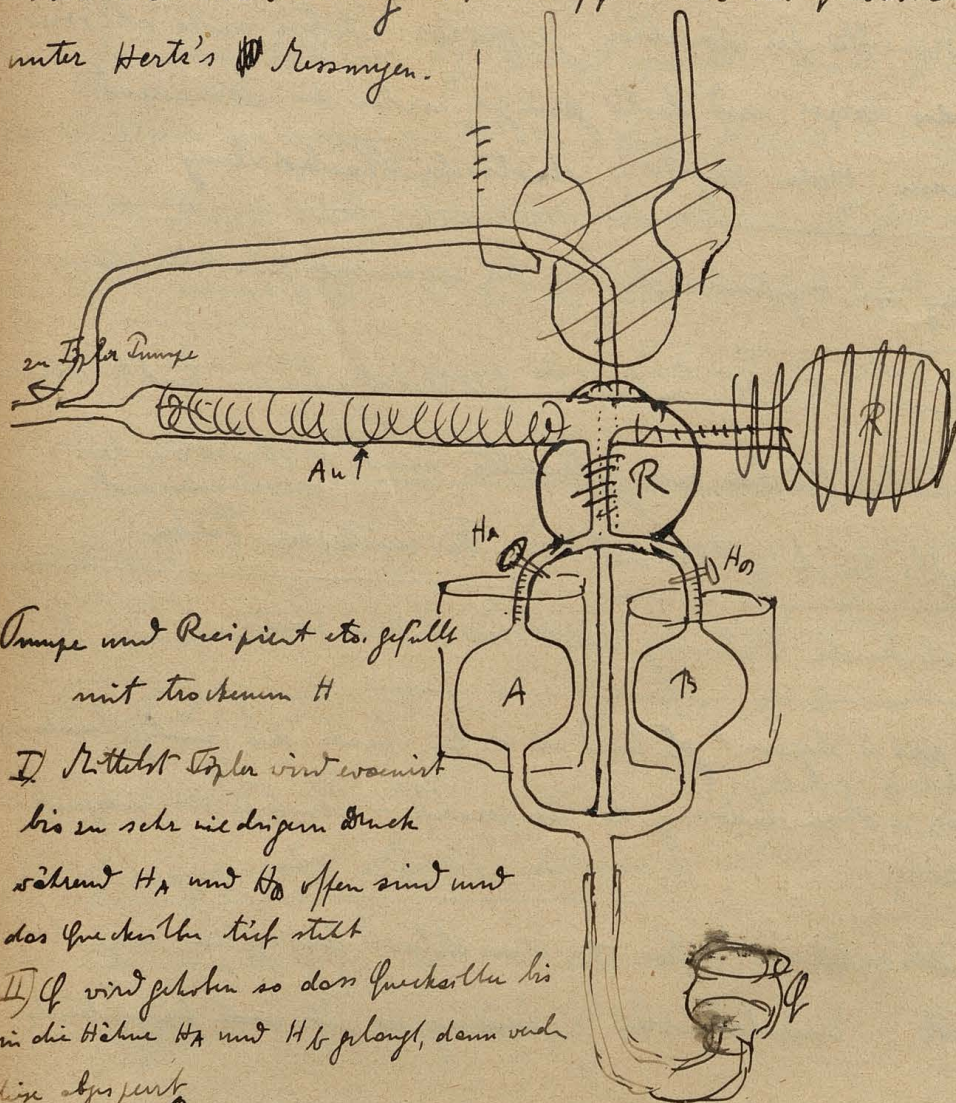 unter Hertz's Messungen.
zu Töpler Pumpe
Au
R
R
HA
HB
A
B
Pumpe und Recipient etc. gefüllt
mit trockenem H
I) Mittelst Töpler wird evacuirt
bis zu sehr niedrigem Druck
während HA und HB offen sind und
das Quecksilber tief steht
II) Q wird gehoben so dass Quecksilber bis
in die Hähne HA und Hb gelangt, dann
Q
abgesperrt